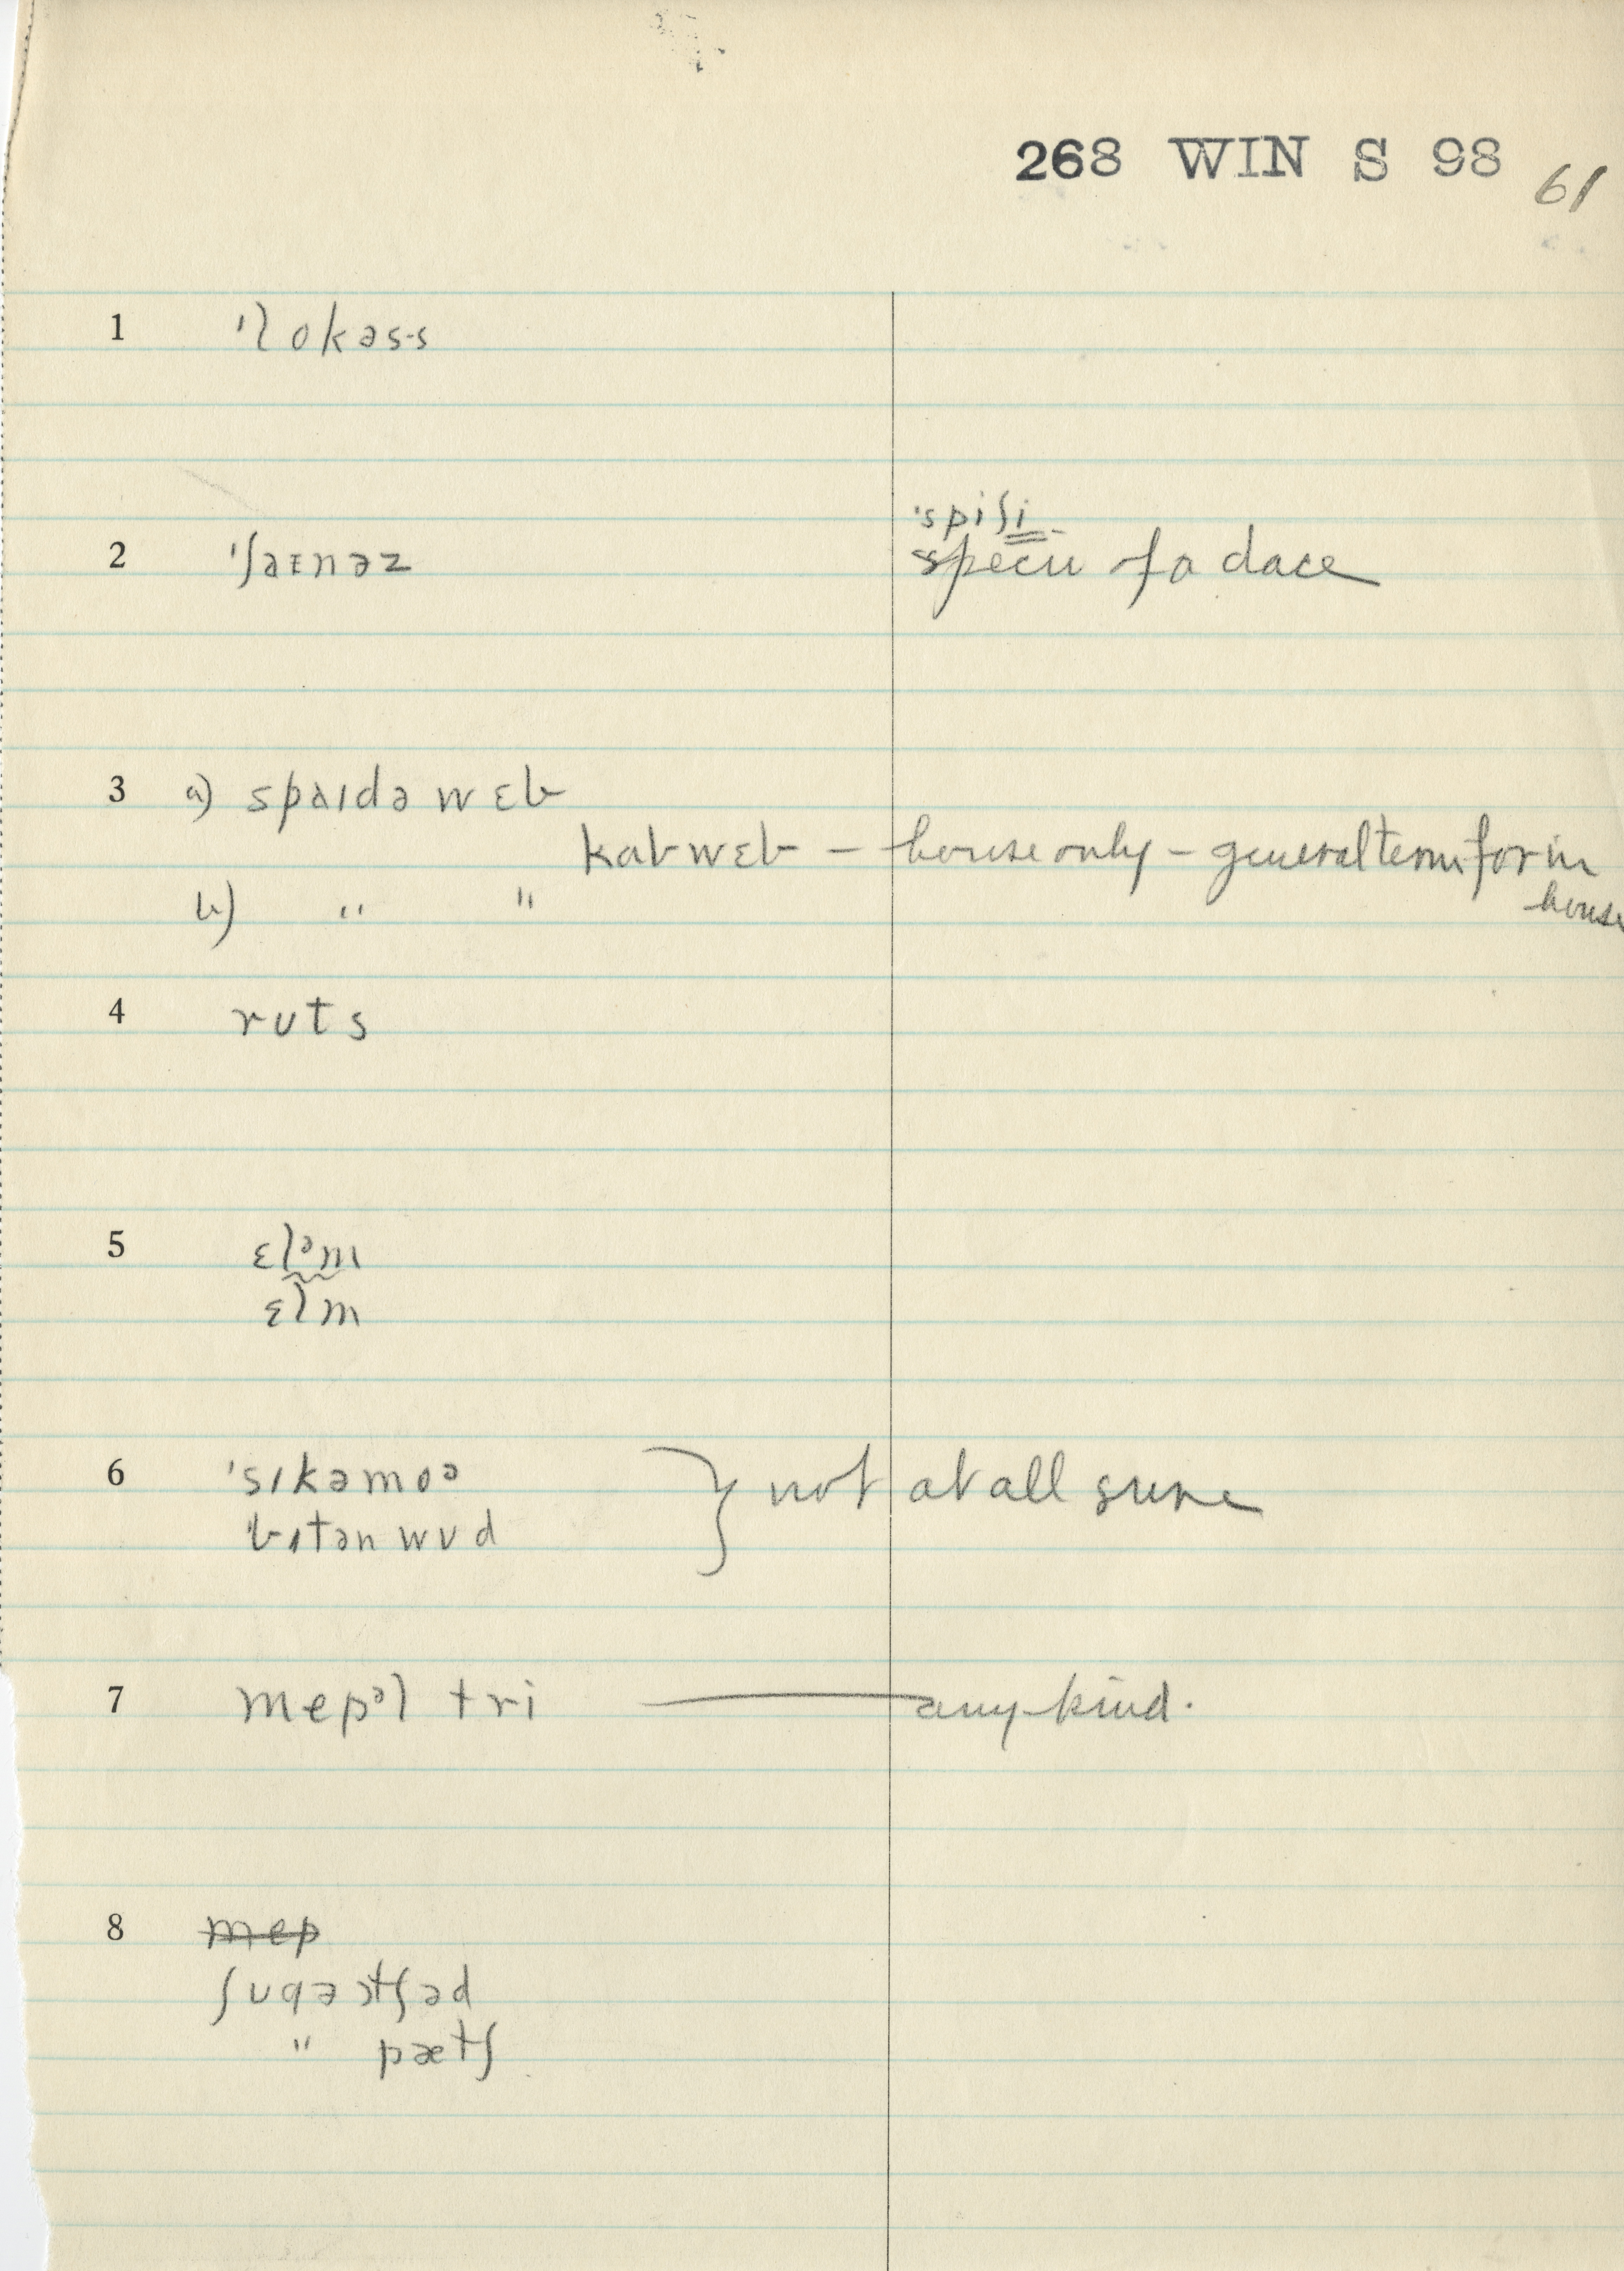 268 WIN S 98 61
1 'lokəs·s
'spiʃi
2 'ʃaɪnəz specie of a dace
3 a) spaɪdə wɛb
kabwɛb – house only – general term for in
house
b) " "
4 ruts
5 ɛlᵊm
ɛlm
6 'sɪkəmoə } not at all sure
bɪtən wʊd
7 mepᵊl tri — any kind.
8 mep
ʃʊgə ɔtʃəd
" pætʃ